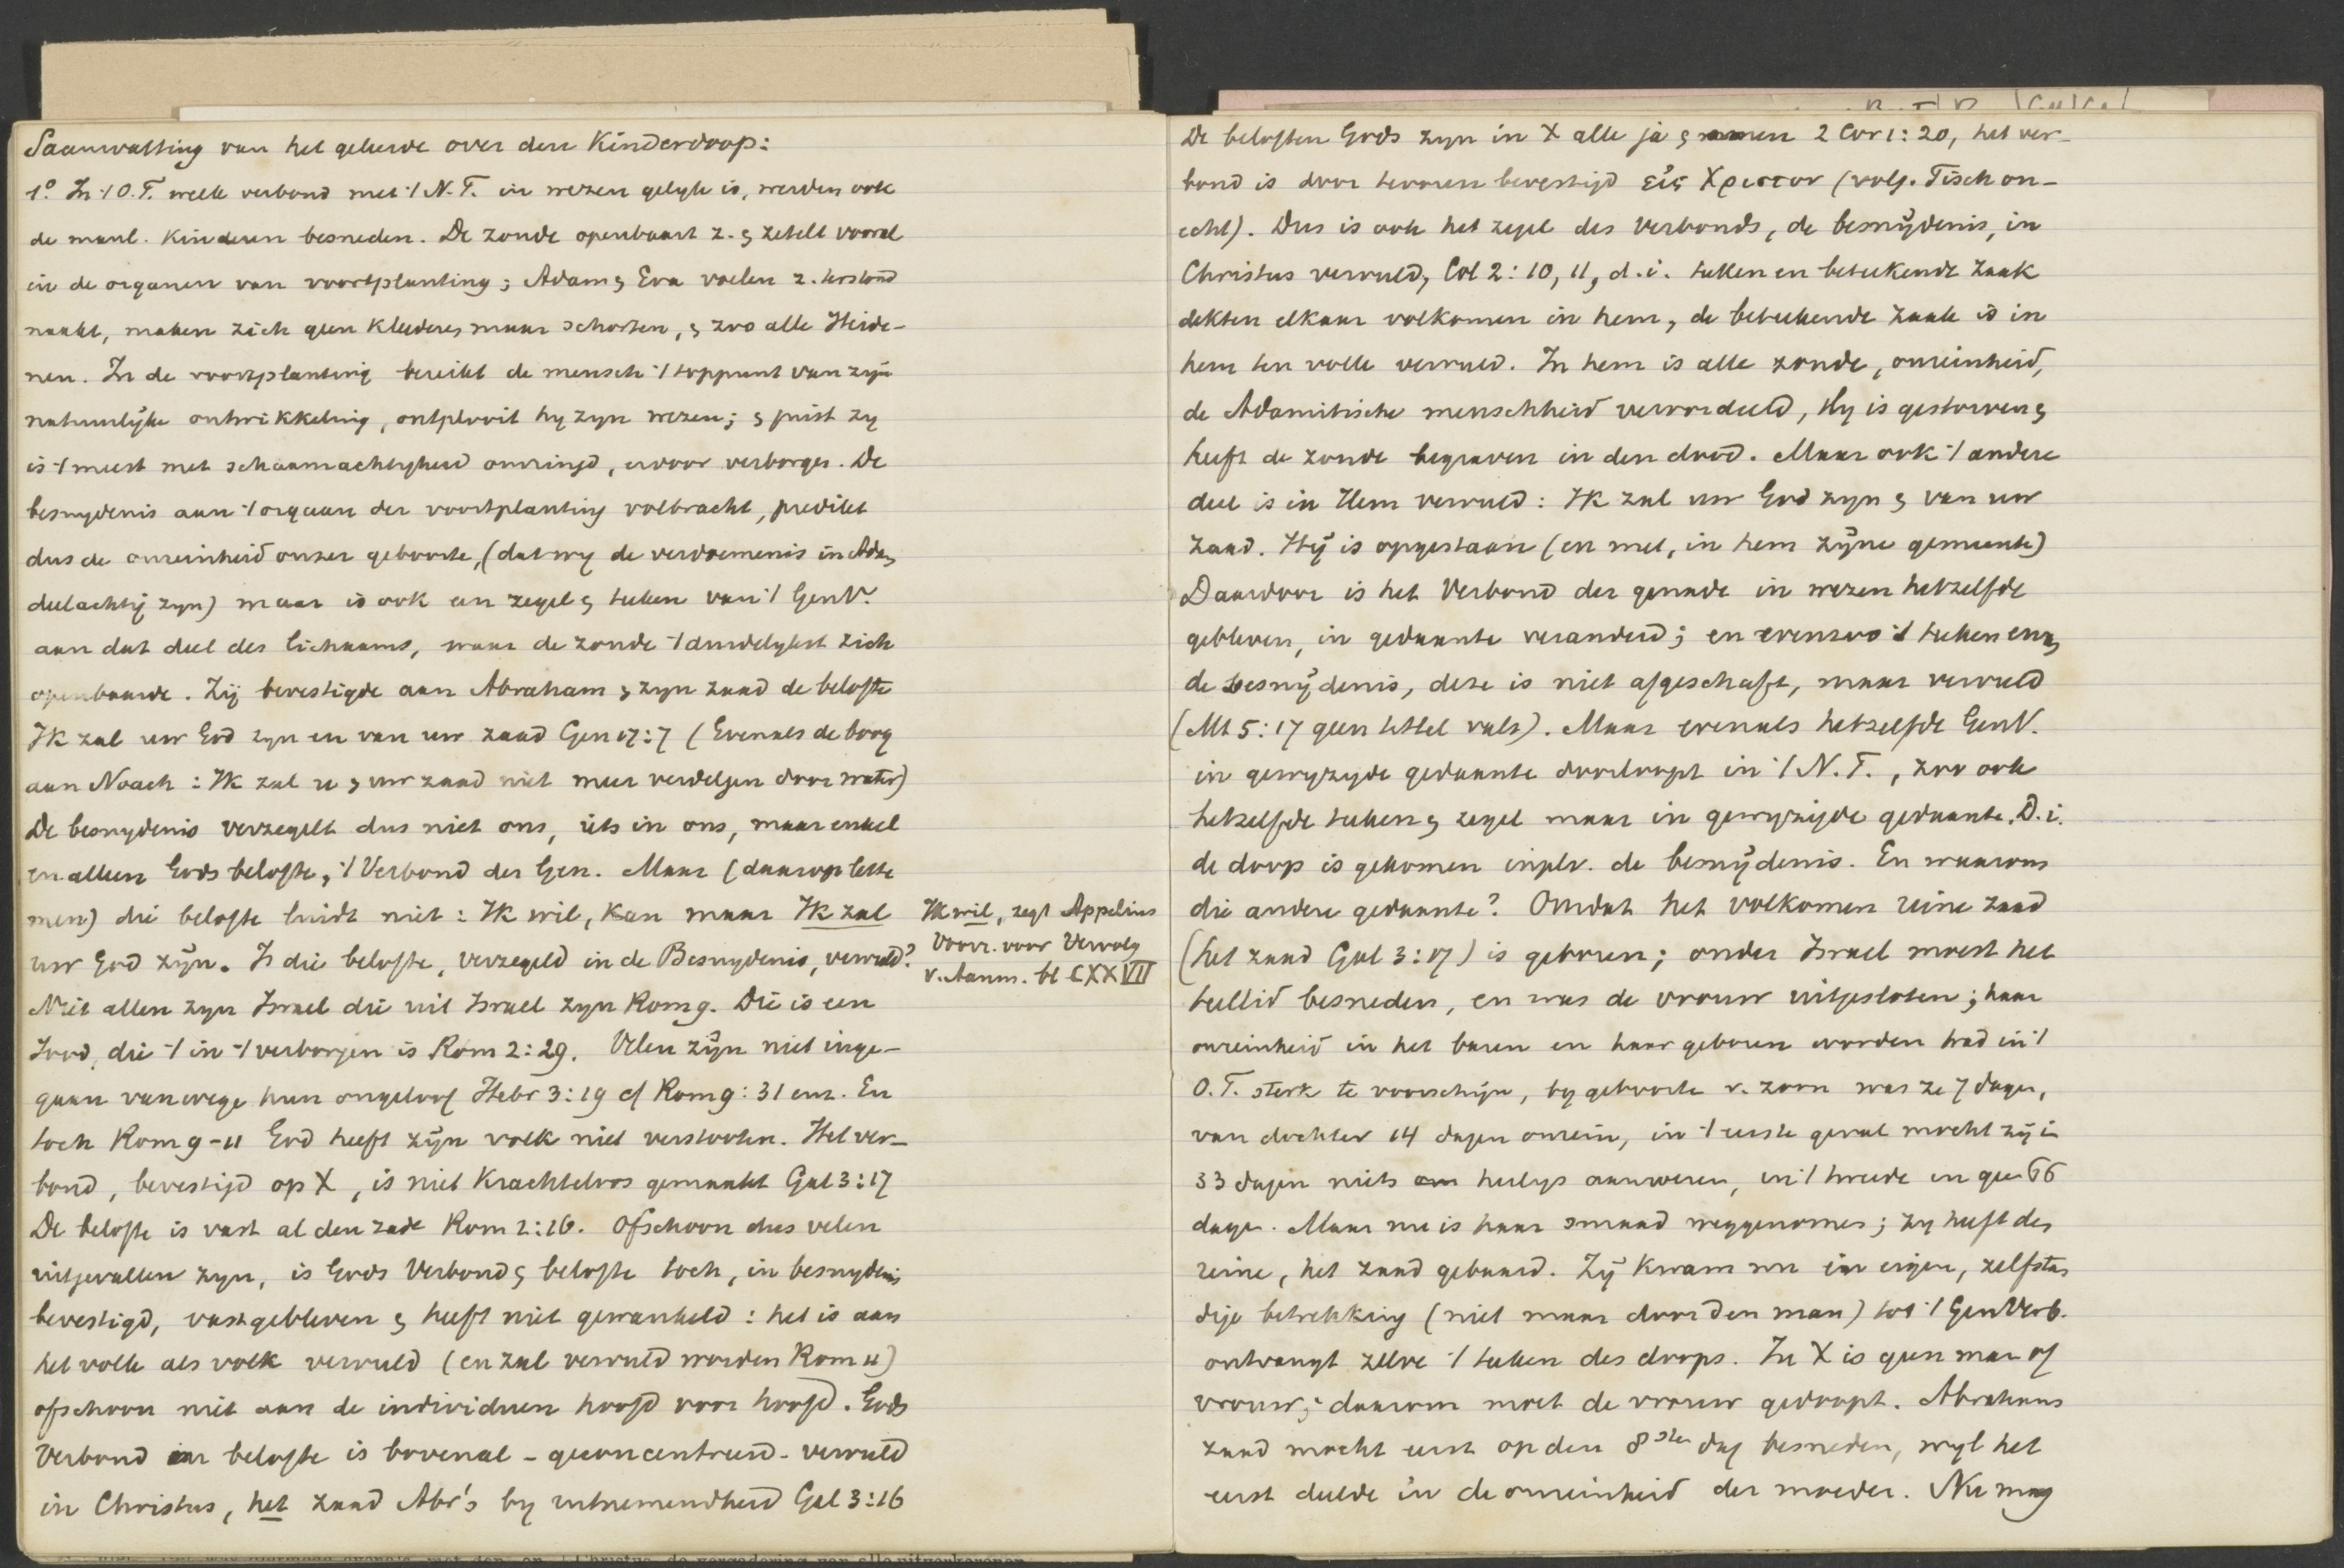 Saamvatting van het geleerde over den Kinderdoop:
1º In 't O.T. welk verbond met 't N.T. in wezen gelyk is, werden ook
de manl. kinderen besneden. De zonde openbaart z. & zetelt vooral
in de organen van voortplanting; Adam & Eva voelen z. terstond
naakt, maken zich geen kleederen, maar schorten, & zoo alle Heide-
nen. In de voortplanting bereikt de mensch 't toppunt van zijn
natuurlijke ontwikkeling, ontplooit hy zyn wezen; & juist zy
is 't meest met schaamachtigheid omringd, ervoor verborgen. De
besnydenis aan 't orgaan der voortplanting volbracht, predikt
dus de onreinheid onzer geboorte, (dat wy de verdoemenis in Adam
deelachtig zyn) maar is ook een zegel & teeken van 't GenV.
aan dat deel des lichaams, waar de zonde 't duidelykst zich
openbaarde. Zij bevestigde aan Abraham & zyn zaad de belofte
Ik zal uw God zyn en van uw zaad Gen 17:7 (Evenals de boog
aan Noach: Ik zal u & uw zaad niet meer verdelgen door water)
De besnydenis verzegelt dus niet ons, iets in ons, maar enkel
en alleen Gods belofte, 't Verbond der Gen. Maar (daarop lette
men) die belofte luidt niet: Ik wil, kan maar Ik zal
uw God zijn. Is die belofte, verzegeld in de Besnydenis, vervuld?
Ik wil, zegt Appelius
Voorr. voor Vervolg
v. Aanm. bl CXXVII
Niet allen zyn Israel die uit Israel zyn Rom 9. Die is een
Jood, die 't in 't verborgen is Rom 2:29. Velen zijn niet inge-
gaan vanwege hun ongeloof Hebr 3:19 cf Rom 9:31 enz. En
toch Rom 9-11 God heeft zijn volk niet verstooten. Het ver-
bond, bevestigd op X, is niet krachteloos gemaakt Gal 3:17
De belofte is vast al den zade Rom 2:16. Ofschoon dus velen
uitgevallen zyn, is Gods Verbond & belofte toch, in besnydenis
bevestigd, vast gebleven & heeft niet gewankeld: het is aan
het volk als volk vervuld (en zal vervuld worden Rom 11)
ofschoon niet aan de individuen hoofd voor hoofd. Gods
Verbond en belofte is bovenal - geconcentreerd - vervuld
in Christus, het zaad Abr's by uitnemendheid Gal 3:16
De beloften Gods zyn in X alle ja & amen 2 Cor 1:20, het ver-
bond is door tevoren bevestigd εἰς Χριστον (volg. Tisch on-
echt). Dus is ook het zegel des Verbonds, de besnijdenis, in
Christus vervuld, Col 2:10,11, d.i. teeken en beteekende zaak
dekten elkaar volkomen in hem, de beteekende zaak is in
hem ten volle vervuld. In hem is alle zonde, onreinheid,
de Adamitische menschheid veroordeeld, Hy is gestorven &
heeft de zonde begraven in den dood. Maar ook 't andere
deel is in Hem vervuld: Ik zal uw God zyn & van uw
zaad. Hij is opgestaan (en met, in hem zijne gemeente)
Daardoor is het Verbond der genade in wezen hetzelfde
gebleven, in gedaante veranderd; en evenzoo 't teeken ervan,
de besnijdenis, deze is niet afgeschaft, maar vervuld
(Mt 5:17 geen tittel valt). Maar evenals hetzelfde GenV.
in gewyzigde gedaante doorloopt in 't N.T., zoo ook
hetzelfde teeken & zegel maar in gewyzigde gedaante. D.i.
de doop is gekomen inplv. de besnijdenis. En waarom
die andere gedaante? Omdat het volkomen reine zaad
(het zaad Gal 3:17) is geboren; onder Israel moest het
teellid besneden, en was de vrouw uitgesloten; haar
onreinheid in het baren en haar geboren worden trad in 't
O.T. sterk te voorschijn, by geboorte v. zoon was ze 7 dagen,
van dochter 14 dagen onrein, in 't eerste geval mocht zij in
33 dagen niets heiligs aanroeren, in 't tweede in geen 66
dagen. Maar nu is haar smaad weggenomen; zy heeft des
reine, het zaad gebaard. Zij kwam nu in eigen, zelfstan
dige betrekking (niet maar door den man) tot 't GenVerb.
ontvangt zelve 't teeken des doops. In X is geen man of
vrouw; daarom moet de vrouw gedoopt. Abrahams
zaad mocht eerst op den 8sten dag besneden, wyl het
eerst deelde in de onreinheid der moeder. Nu mag